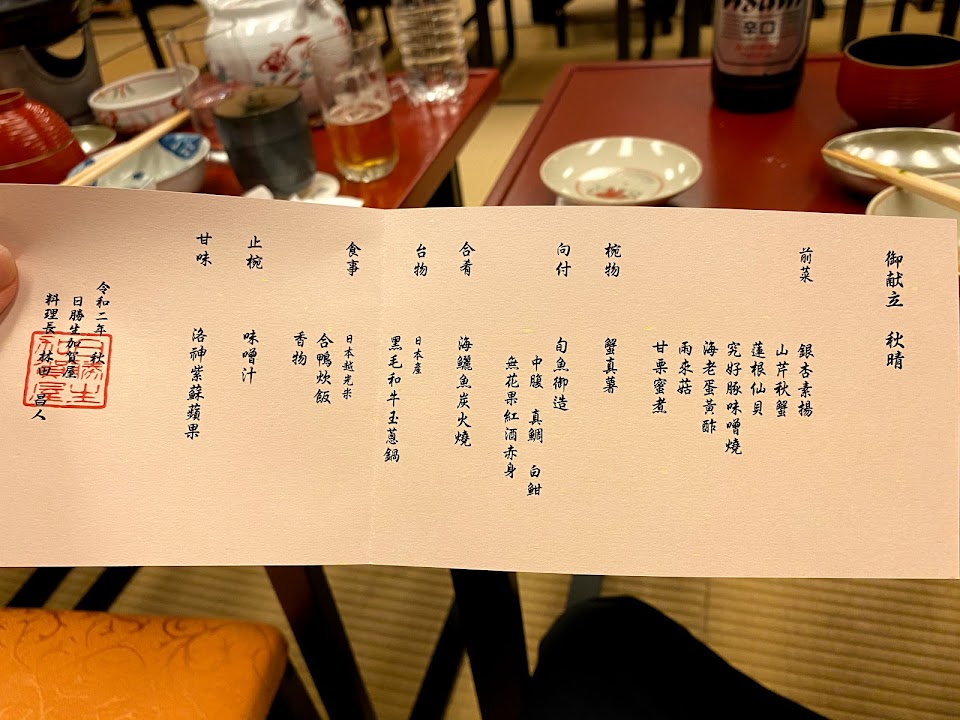 御献立 秋晴
前菜
銀杏素揚
山芹秋蟹
蓮根仙貝
究好豚味噌燒
海老蛋黃酢
雨來菇
甘栗蜜煮
椀物 蟹真薯
向付 旬魚御造
中腹 真鯛 白魽
無花果紅酒赤身
合肴 海鱺魚炭火燒
台物 日本産
黑毛和牛玉蔥鍋
食事 日本越光米
合鴨炊飯
香物
止椀 味噌汁
甘味 洛神紫蘇蘋果
令和二年 秋
日勝生加賀屋
料理長 林田 昌人
Asahi
辛口